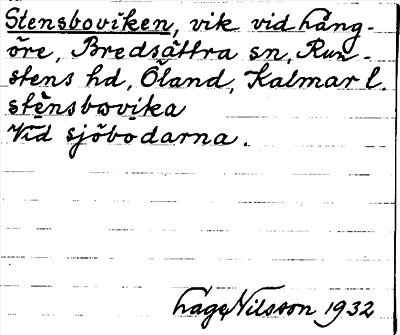 Stensboviken, vik vid Lång-
öre, Bredsättra sn, Run-
stens hd, Öland, Kalmar l.
stènsbovika
Vid sjöbodarna.
Lage Nilsson 1932